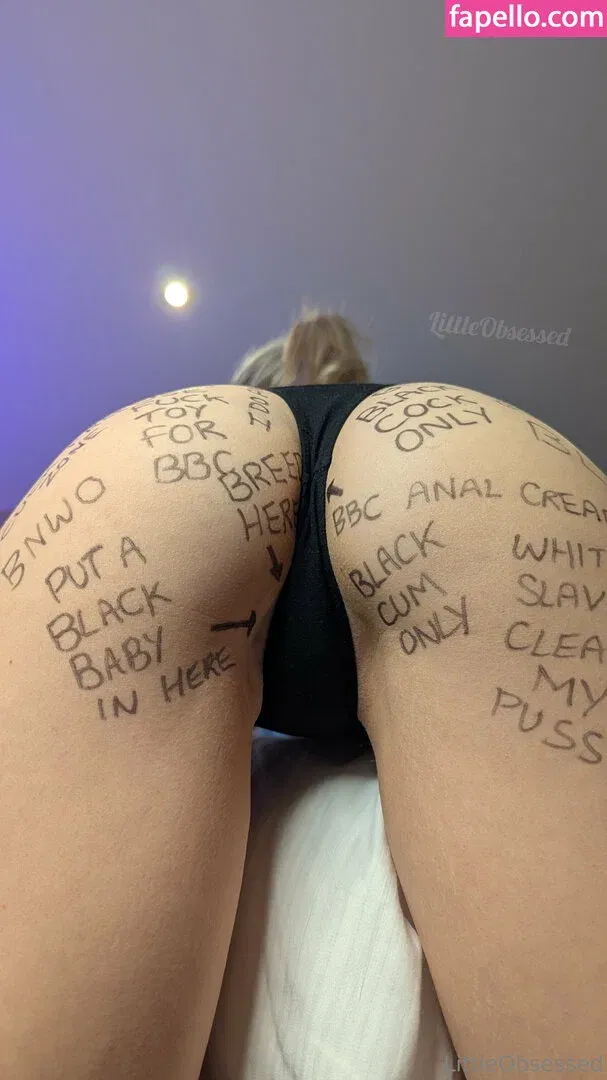 fapello.com
LittleObsessed
FUCK
TOY
FOR
BBC
BREED
HERE
BNWO
PUT A
BLACK
BABY
IN HERE
BLACK
COCK
ONLY
BBC ANAL CREAM
BLACK
CUM
ONLY
WHIT
SLAV
CLEA
MY
PUSS
LittleObsessed